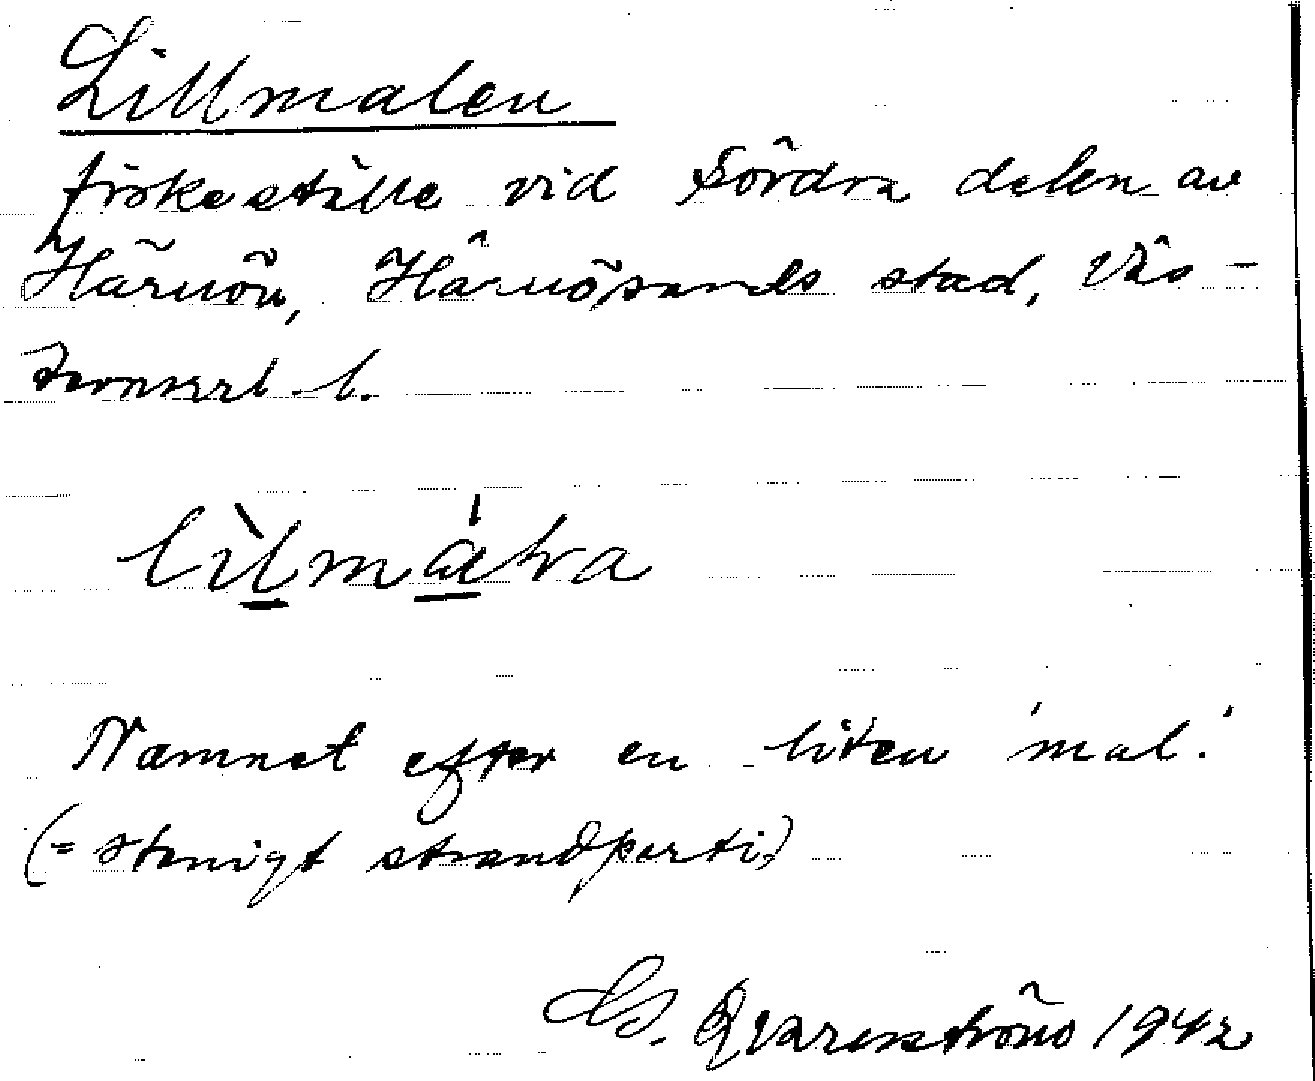 Lillmalen
fiskeställe vid Södra delen av
Härnön, Härnösands stad, Väs-
ternorrl. l.
Namnet efter en liten 'mal'
(= stenigt strandparti)
Qvarnström 1942